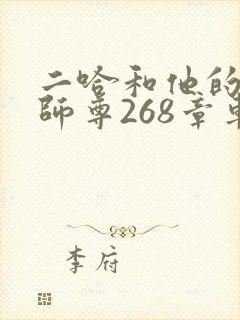 二哈和他的
師尊268章
李府